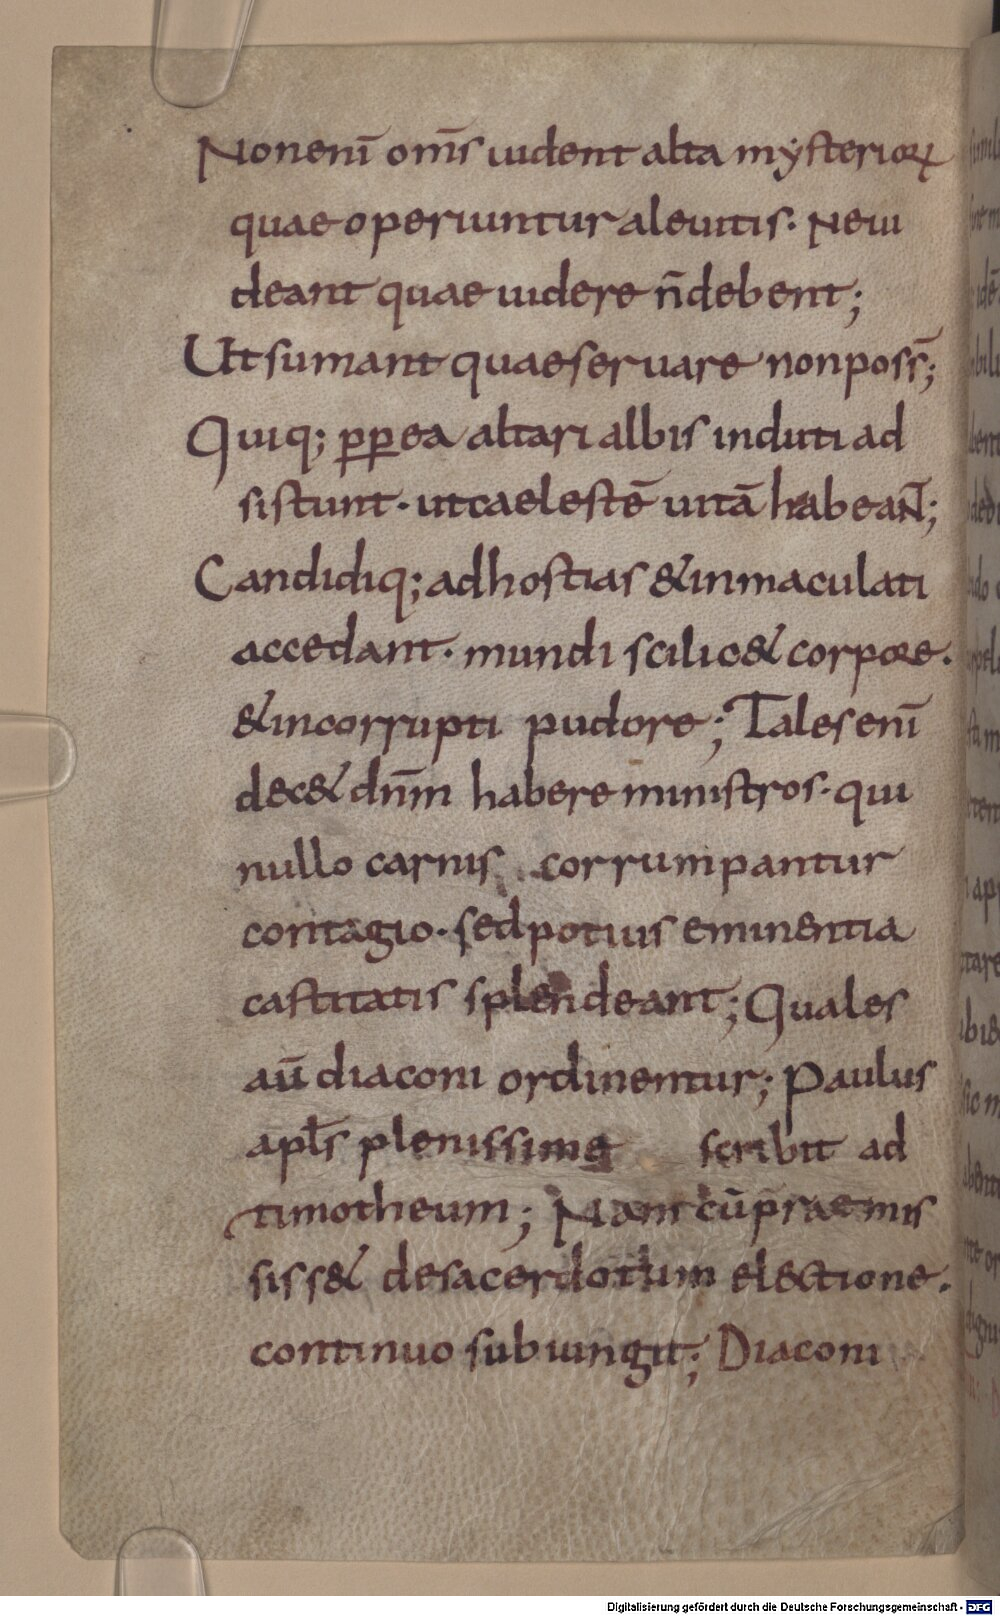 Non enī om̄s uident alta mysterioꝝ
quae operiuntur aleuitis· Neui
deant quae uidere n̄ debent;
Ut sumant quae seruare non poss̄;
Quiq; ꝓpea altari albis induti ad
sistunt· ut caelestē uitā habeaN̄;
Candidiq; ad hostias & inmaculati
accedant· mundi scilic& corpore·
& incorrupti pudore; Tales enī
dec& dn̄m habere ministros· qui
nullo carnis corrumpantur
contagio· sed potius eminentia
castitatis splendeant; Quales
aū diaconi ordinentur; Paulus
apl̄s plenissime scribit ad
timotheum; Nam cū praemis
siss& de sacerdotum electione·
continuo subiungit; Diaconi
Digitalisierung gefördert durch die Deutsche Forschungsgemeinschaft - DFG